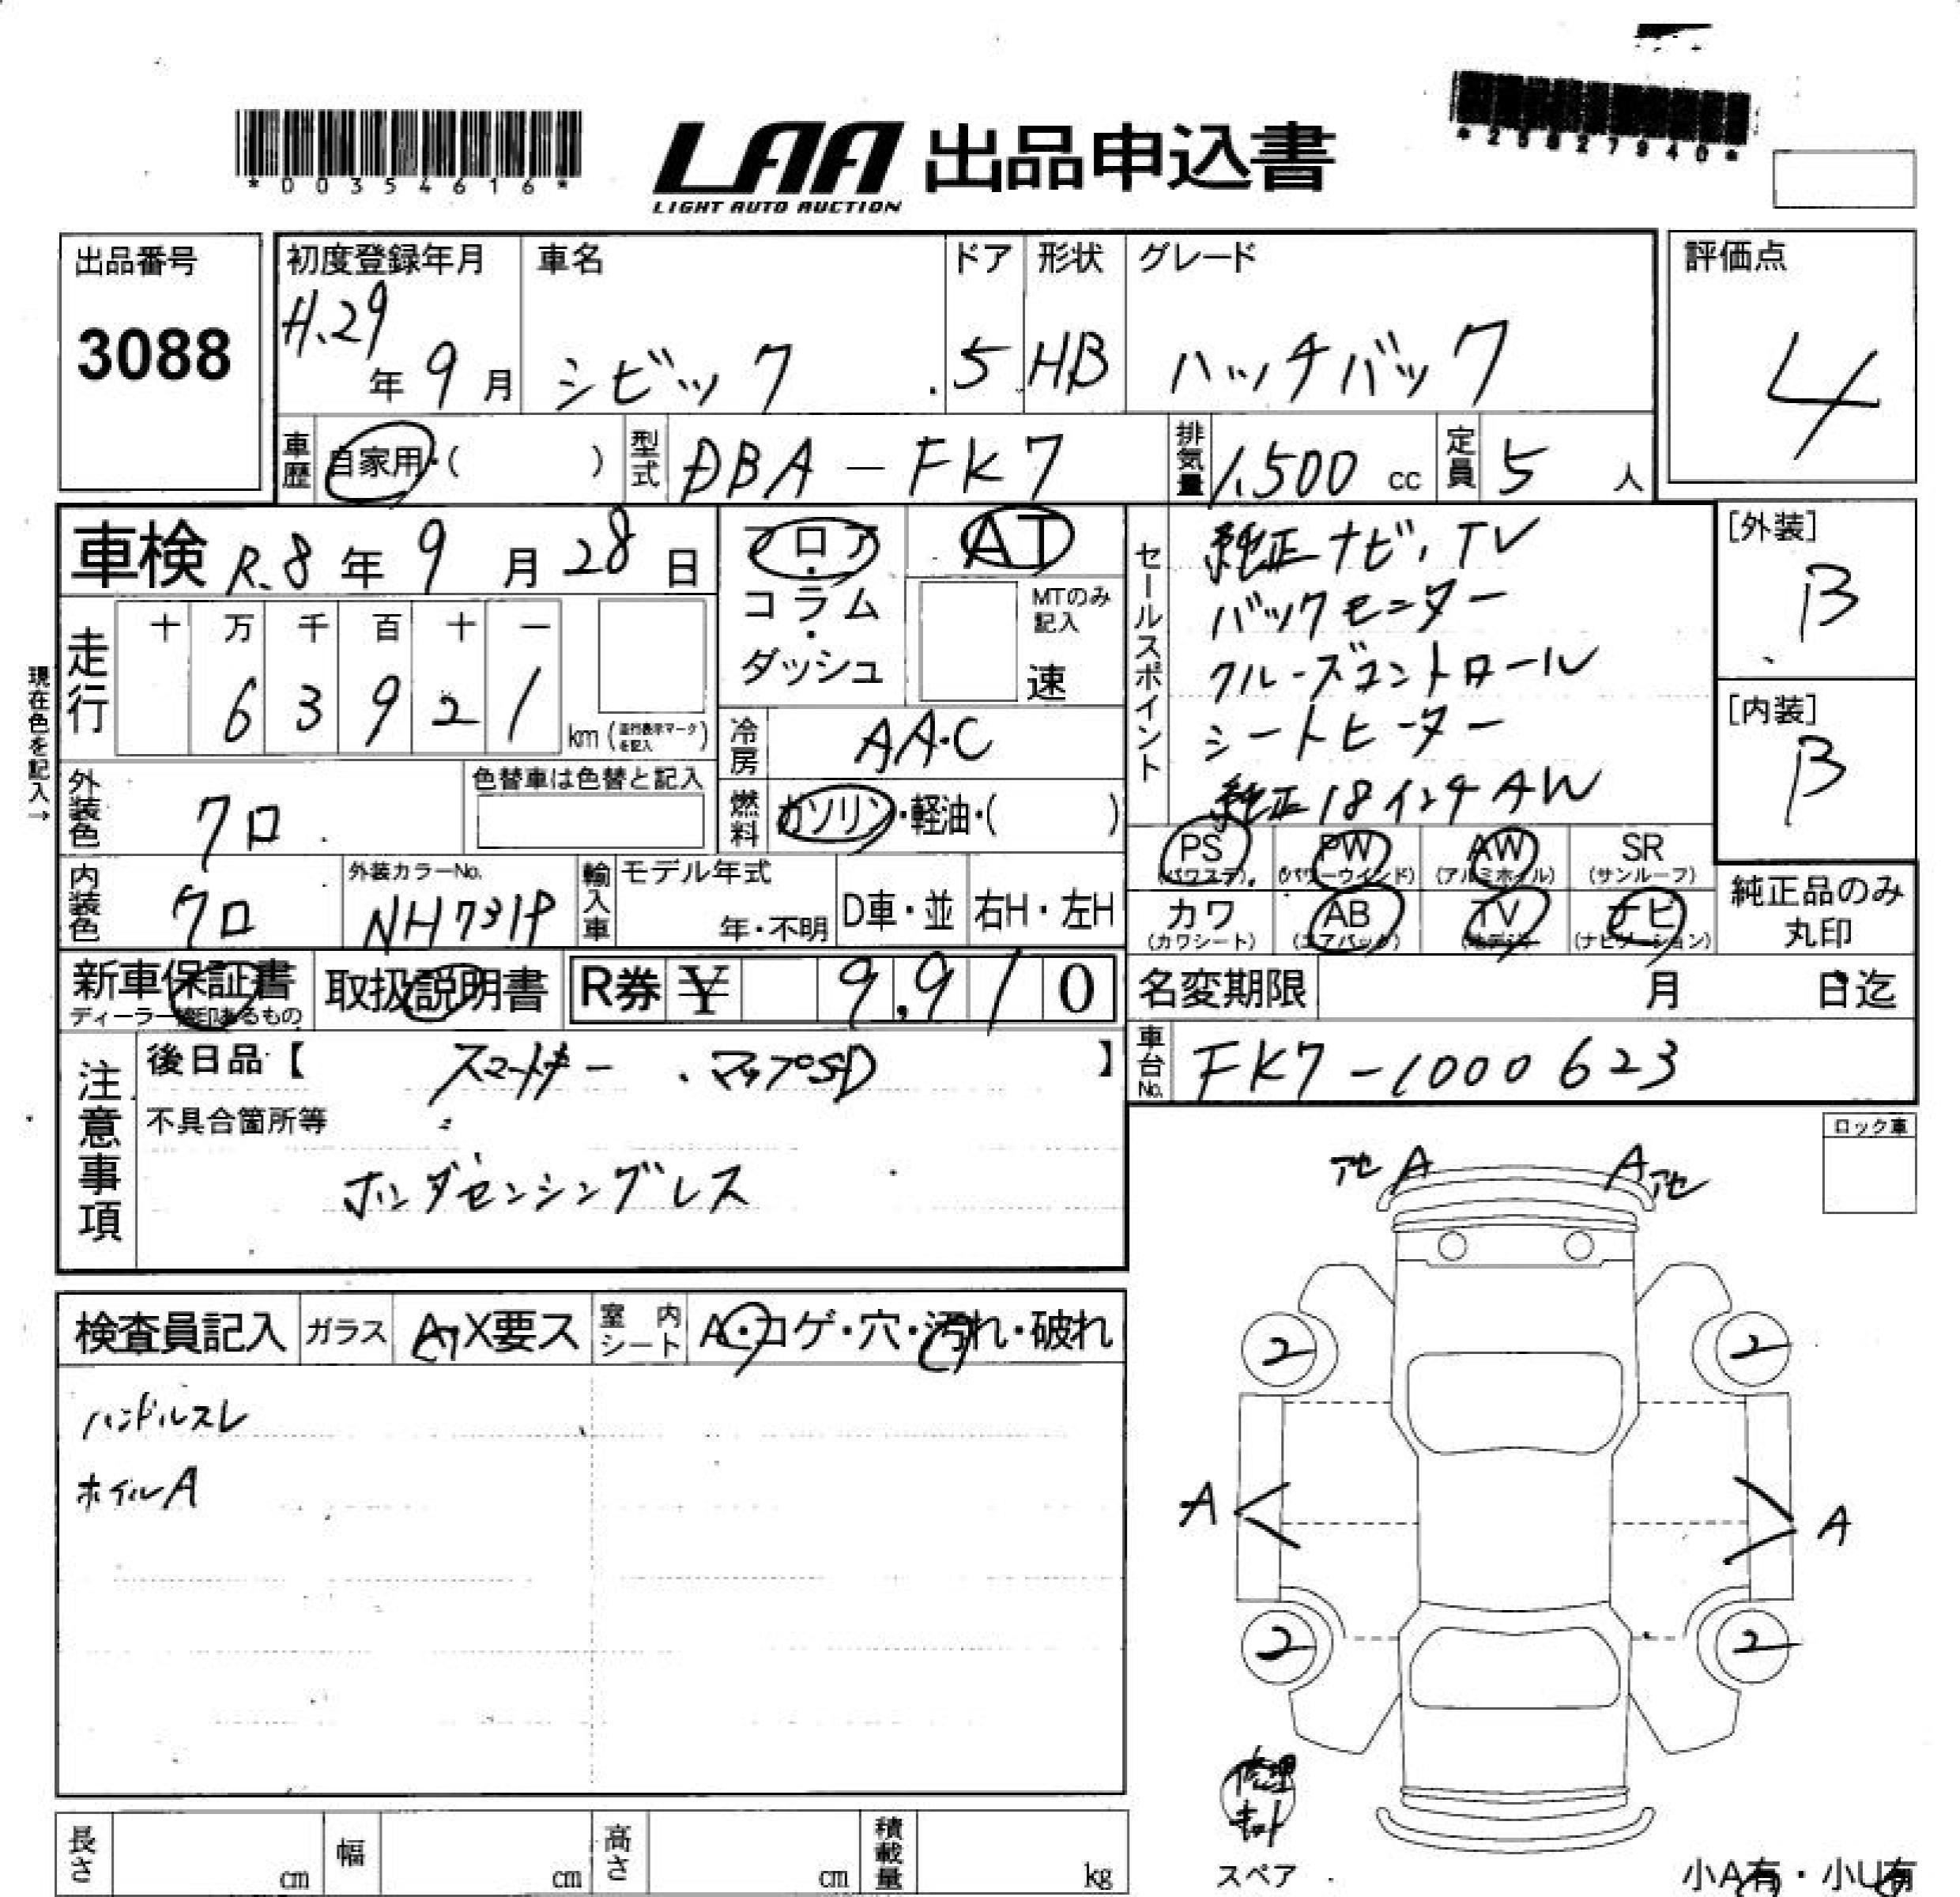 *00354616*
LAA 出品申込書
LIGHT AUTO AUCTION
*25827940*
出品番号
3088
初度登録年月
H.29年9月
車名
シビック
ドア
5
形状
HB
グレード
ハッチバック
評価点
4
車歴 自家用・( )
型式 DBA-FK7
排気量 1,500 cc
定員 5 人
車検 R.8年9月28日
フロア・コラム・ダッシュ
AT
MTのみ記入
速
セールスポイント
純正ナビ,TV
バックモニター
クルーズコントロール
シートヒーター
純正18インチAW
[外装]
B
[内装]
B
現在色を記入→
走行
十 万 千 百 十 一
6 3 9 2 1
km (走行表示マークを記入)
冷房 AA・C
外装色 クロ
色替車は色替と記入
燃料 ガソリン・軽油・( )
PS (パワステ)
PW (パワーウインド)
AW (アルミホイル)
SR (サンルーフ)
内装色 クロ
外装カラーNo.
NH731P
輸入車
モデル年式
年・不明
D車・並
右H・左H
カワ (カワシート)
AB (エアバック)
TV (地デジ)
ナビ (ナビゲーション)
純正品のみ
丸印
新車保証書
ディーラー捺印あるもの
取扱説明書
R券 ¥ 9,910
名変期限 月 日迄
注意事項
後日品【 スマートキー . マップSD 】
車台No. FK7-1000623
不具合箇所等
ホンダセンシングレス
ロック車
アセ A
A アセ
検査員記入
ガラス A・X要ス
室内シート A・コゲ・穴・汚れ・破れ
ハンドルスレ
ホイルA
2
2
A
A
2
2
修理キット
スペア
長さ cm
幅 cm
高さ cm
積載量 kg
小A有・小U有